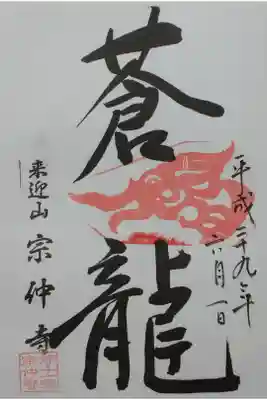 平成二十九年
六月一日
蒼龍
来迎山 宗仲寺